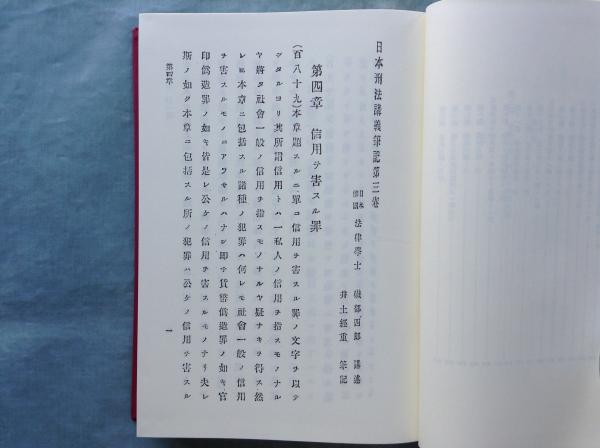 日本刑法講義筆記第三卷
日本
佛國 法律學士 磯部四郎 講述
井土經重 筆記
第四章 信用ヲ害スル罪
(百八十九)本章題スルニ單ニ信用ヲ害スル罪ノ文字ヲ以テ
シタルヨリ其所謂信用トハ一私人ノ信用ヲ指スモノナル
ヤ將タ社會一般ノ信用ヲ指スモノナルヤ疑ナキヲ得ス然
レ𪜈本章ニ包括スル諸種ノ犯罪ハ何レモ社會一般ノ信用
ヲ害スルモノニアラサルハナシ即チ貨幣僞造罪ノ如キ官
印僞造罪ノ如キ皆是レ公ケノ信用ヲ害スルモノナリ夫レ
斯ノ如ク本章ニ包括スル所ノ犯罪ハ公ケノ信用ヲ害スル
第四章
一